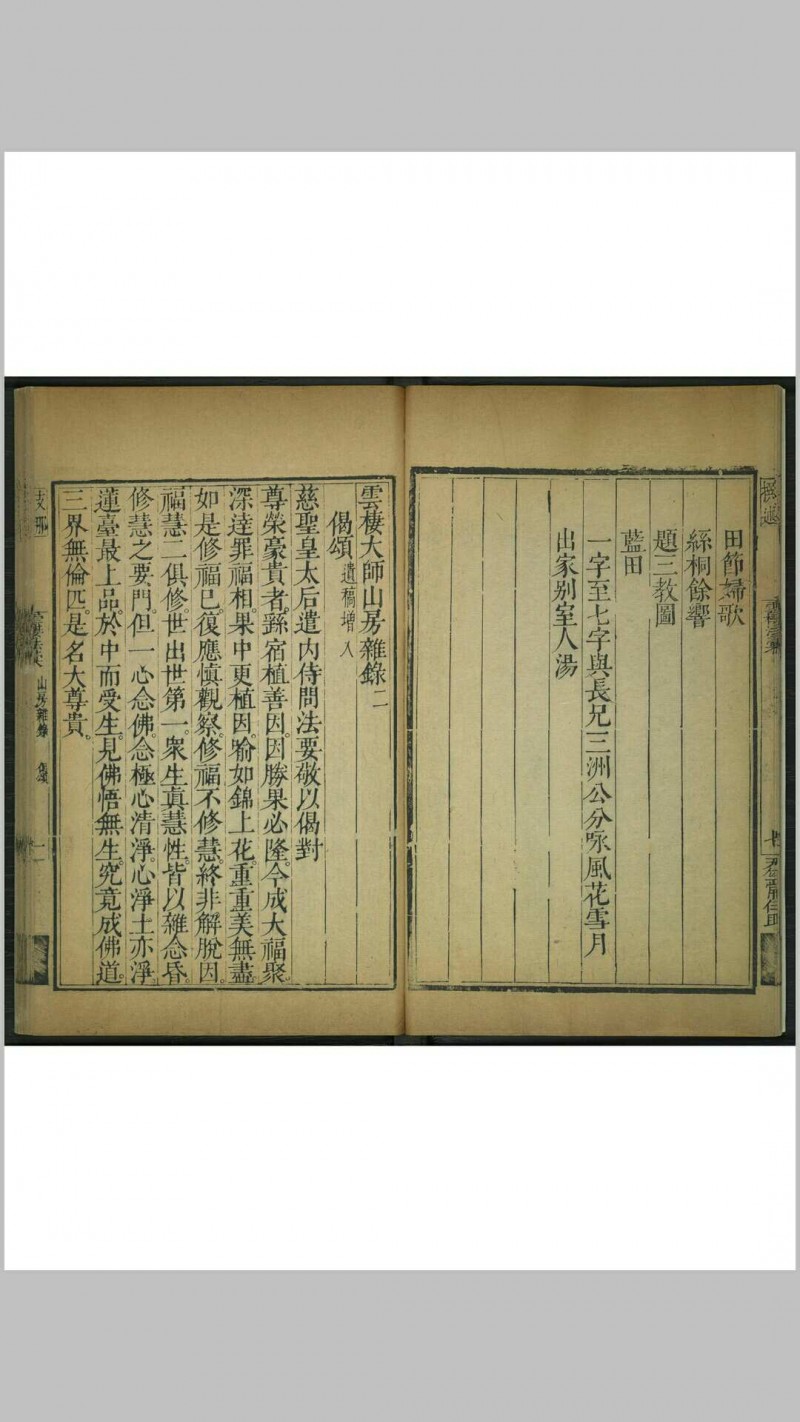 田節婦歌
絲桐餘響
題三教圖
藍田
一字至七字與長兄三洲公分咏風花雪月
出家别室人湯
雲棲大師山房雜錄二
偈頌 遺稿增入
慈聖皇太后遣内侍問法要敬以偈對
尊榮豪貴者。繇宿植善因。因勝果必隆。今成大福聚。
深達罪福相。果中更植因。喻如錦上花。重重美無盡。
如是修福已。復應慎觀察。修福不修慧。終非解脫因。
福慧二俱修。世出世第一。衆生真慧性。皆以雜念昏。
修慧之要門。但一心念佛。念極心清淨。心淨土亦淨。
蓮臺最上品。於中而受生。見佛悟無生。究竟成佛道。
三界無倫匹。是名大尊貴。
支那
山房雜錄